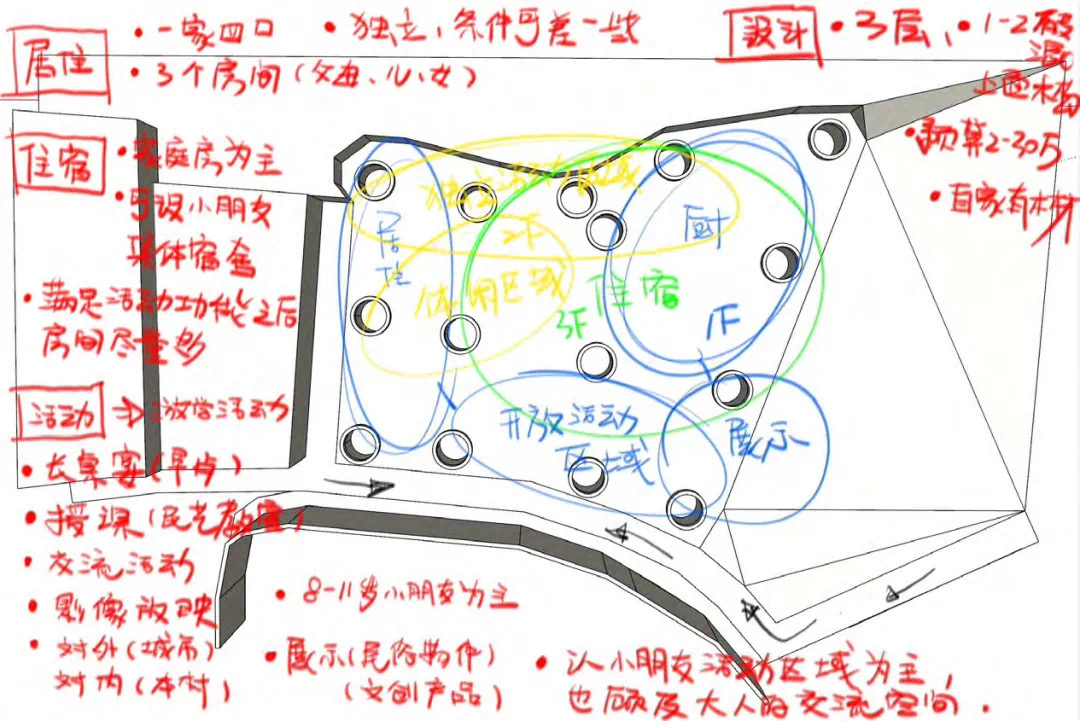 居住
• 一家四口
• 独立，条件可差一些
• 3个房间（父母、儿、女）
设计
• 3层、• 1-2砖混
上面木构
• 预算2-30万
• 自家有木材
住宿
• 家庭房为主
• 可设小朋友
集体宿舍
• 满足活动功能之后
房间尽量多
活动 → 游学活动
• 长桌宴（早点）
• 授课（民艺教室）
• 交流活动
• 影像放映
• 对外（城市）
对内（本村）
• 8-11岁小朋友为主
• 展示（民俗物件）
（文创产品）
• 以小朋友活动区域为主，
也顾及大人的交流空间．
独立活动区域
2F
居住
休闲区域
住宿
3F
厨
1F
开放活动
区域
展示